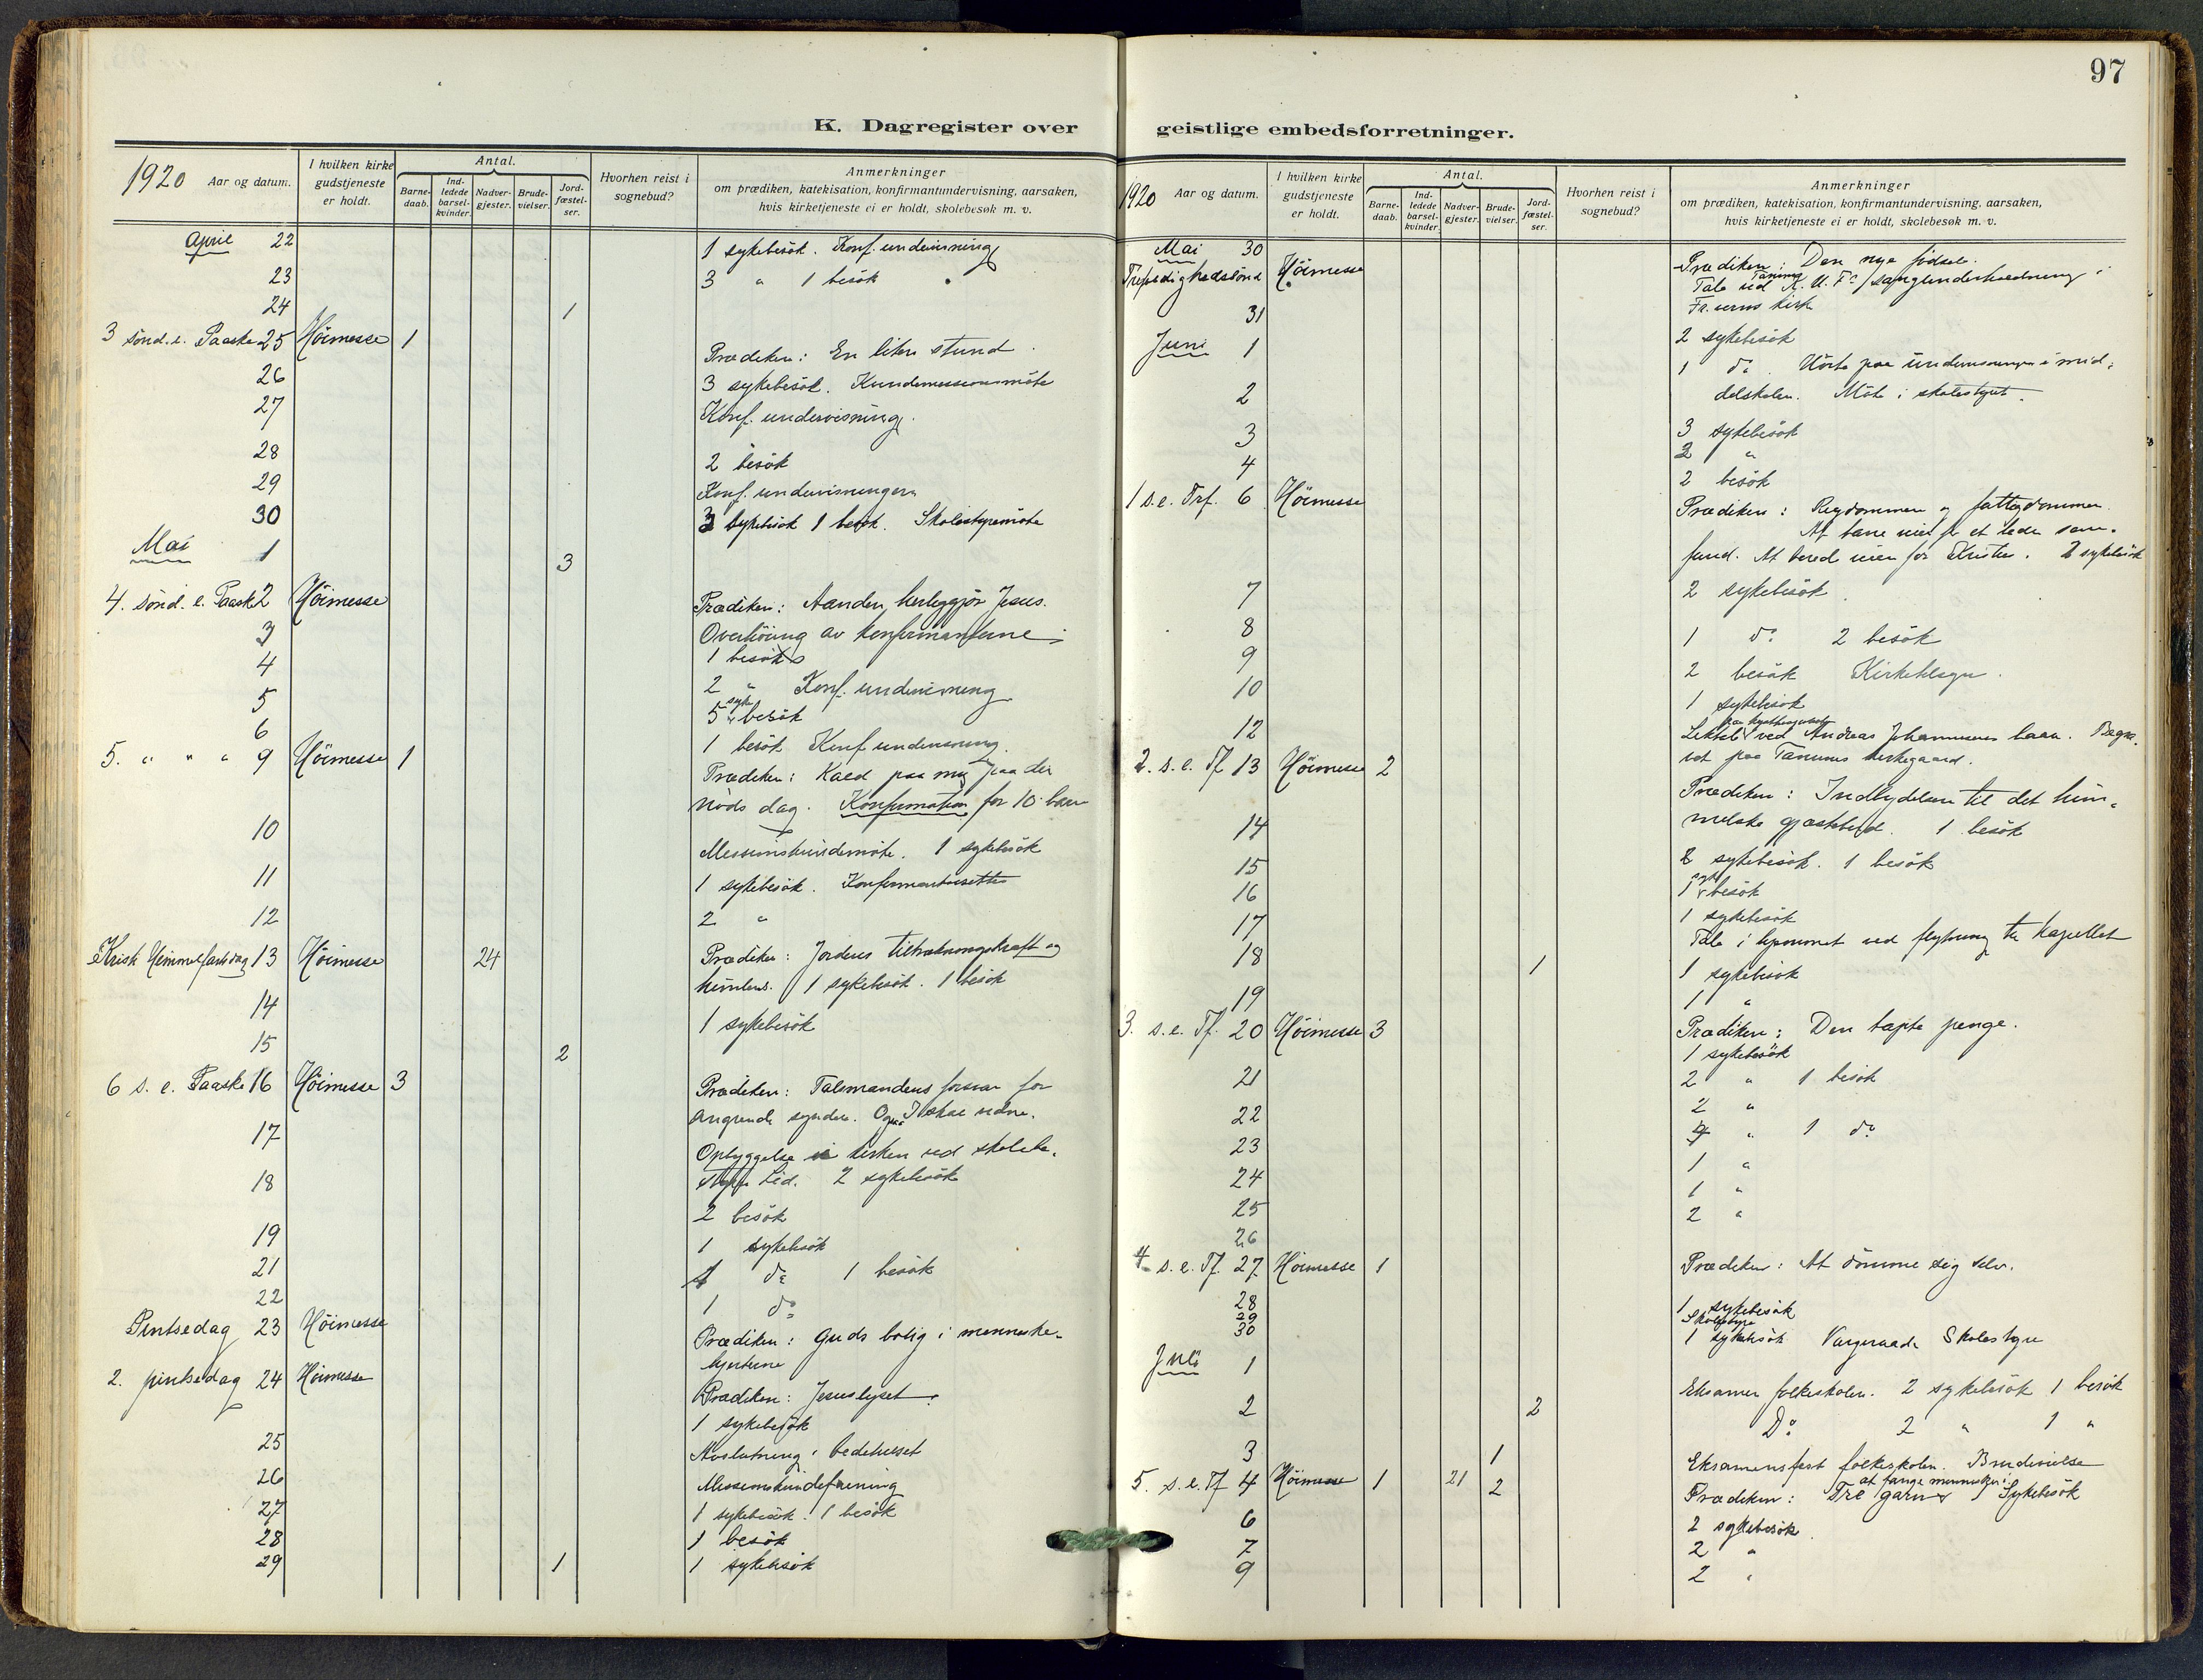 97
K. Dagregister over
1920 Aar og datum.
I hvilken kirke gudstjeneste er holdt.
Antal.
Barne-daab.
Ind-ledede barsel-kvinder.
Nadver-gjester.
Brude-vielser.
Jord-fæstel-ser.
Hvorhen reist i sognebud?
Anmerkninger
om prædiken, katekisation, konfirmantundervisning, aarsaken,
hvis kirketjeneste ei er holdt, skolebesøk m. v.
April 22 1 sykebesök. Konf. undervisning
23 3 " 1 besök
24 1
3 sönd. e. Paaske 25 Höimesse 1 Prædiken: En liten stund
26 3 sykebesök.
27 Konf. undervisning.
28 2 besök
29 Konf. undervisningen
30 3 sykebesök 1 besök. Skolestyremöte
Mai 1 3
4. sönd. e. Paaske 2 Höimesse Prædiken: Aanden herliggjör Jesus.
Overhöring av konfirmantene
3 1 besök
4 2 " Konf. undervisning
5 5 sykebesök
6 1 besök Konf. undervisning.
5. " " " 9 Höimesse 1 Prædiken: Kald paa mig paa din
nöds dag. Konfirmation for 10 barn
10 1 sykebesök
11 1 sykebesök.
12 2 "
Krist Himmelfartsdag 13 Höimesse 24 Prædiken: Jordens tiltrækningskraft og
himlens. 1 sykebesök. 1 besök
14 1 sykebesök
15 2
6 s. e. Paaske 16 Höimesse 3 Prædiken: Talsmandens forsvar for
angrende syndere. Ogsaa I skal vidne.
17 Opbyggelse i kirken ved skolebe-
styrer Lid. 2 sykebesök
18 2 besök
19 1 sykebesök
21 1 do 1 besök
22 1 do
Pintsedag 23 Höimesse Prædiken: Guds bolig i menneske-
hjerterne
2. pintsedag 24 Höimesse Prædiken: Jesuslyset.
1 sykebesök
25 Avslutning i bedehuset
26 Missionskvindeforening
27 1 sykebesök. 1 besök
28 1 besök
29 1 1 sykebesök
geistlige embedsforretninger.
1920 Aar og datum.
I hvilken kirke gudstjeneste er holdt.
Antal.
Barne-daab.
Ind-ledede barsel-kvinder.
Nadver-gjester.
Brude-vielser.
Jord-fæstel-ser.
Hvorhen reist i sognebud?
Anmerkninger
om prædiken, katekisation, konfirmantundervisning, aarsaken,
hvis kirketjeneste ei er holdt, skolebesøk m. v.
Mai 30 Prædiken: Den nye födsel.
Trefoldighedssönd Höimesse Tale ved K. U. F. sangunderholdning i
31 2 sykebesök
Juni 1 1 do. Hörte paa undervisningen i mid-
delskolen. Möte i skolestyret.
2 3 sykebesök
3 2 "
4 2 besök
1 s. e. Trf. 6 Höimesse Prædiken: Rigdommen og fattigdommen.
2 sykebesök
7 2 sykebesök
8 1 do 2 besök
9 2 besök
10 1 sykebesök
12 ved Andreas Johannesen
paa Tanums kirkegaard.
2. s. e. Tf. 13 Höimesse 2 Prædiken: Indbydelsen til det him-
melske gjæstebud. 1 besök
14 2 sykebesök. 1 besök
15 1 sykebesök
16 1 sykebesök
17 Tale i ved flytning til Kapellet
18 1 1 sykebesök
19 1 "
3. s. e. Tf. 20 Höimesse 3 Prædiken: Den tapte penge.
1 sykebesök
21 2 " 1 besök
22 2 "
23 " 1 do
24 1 "
25 1 "
26 2 "
4 s. e. Tf. 27 Höimesse 1 Prædiken: At dömme sig selv.
28 1 sykebesök
29 Skolestyre
30 1 sykebesök Vergeraad Skolestyre
Juli 1 Eksamen folkeskolen. 2 sykebesök 1 besök
2 2 Do 2 " 1 "
3 1 Eksamensfest folkeskolen. Brudevielse
5. s. e. Tf 4 Höimesse 1 21 2 Prædiken: Tre garn at fange mennesker i Sykebesök
6 2 sykebesök.
7 2 "
9 2 "